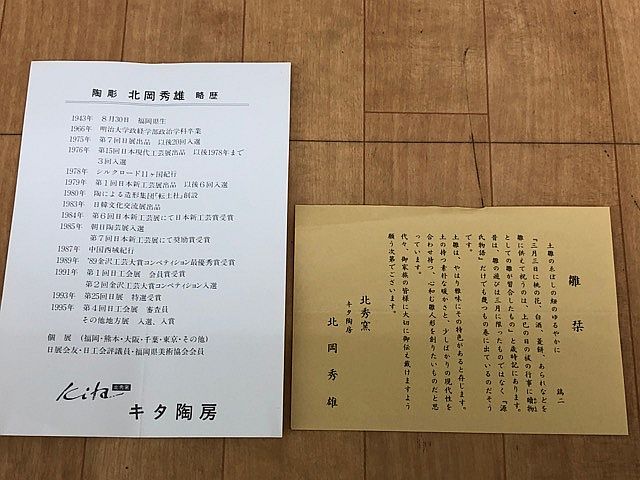 陶彫 北岡秀雄 略歴
1943年 8月30日 福岡県生
1966年 明治大学政経学部政治学科卒業
1975年 第7回日展出品 以後20回入選
1976年 第15回日本現代工芸展出品 以後1978年まで
3回入選
1978年 シルクロード11ヶ国紀行
1979年 第1回日本新工芸展出品 以後6回入選
1980年 陶による造形集団「転土社」創設
1983年 日韓文化交流展出品
1984年 第6回日本新工芸展にて日本新工芸賞受賞
1985年 朝日陶芸展入選
第7回日本新工芸展にて奨励賞受賞
1987年 中国西域紀行
1989年 '89金沢工芸大賞コンペティション最優秀賞受賞
1991年 第1回日工会展 会員賞受賞
第2回金沢工芸大賞コンペティション入選
1993年 第25回日展 特選受賞
1995年 第4回日工会展 審査員
その他地方展 入選、入賞
個展(福岡・熊本・大阪・千葉・東京・その他)
日展会友・日工会評議員・福岡県美術協会会員
Kita 北秀窯
キタ陶房
雛栞
土雛のゑぼしの紐のゆるやかに
「三月三日に桃の花、白酒、菱餅、あられなどを
雛に供えて祝うのは、上巳の日の祓の行事に贖物
としての雛が習合したもの」と歳時記にあります。
昔は、雛の遊びは三月に限ったものではなく「源
氏物語」だけでも幾つもの巻に出ているのだそう
です。
土雛は、やはり雛味にその特色があると存じます。
土の持つ素朴な暖かさと、少しばかりの現代性を
合わせ持つ、心和む雛人形を創りたいものだと思
っています。
代々、御家族の皆様に大切に御伝え戴けますよう
願う次第でございます。
北秀窯
キタ陶房
北岡秀雄